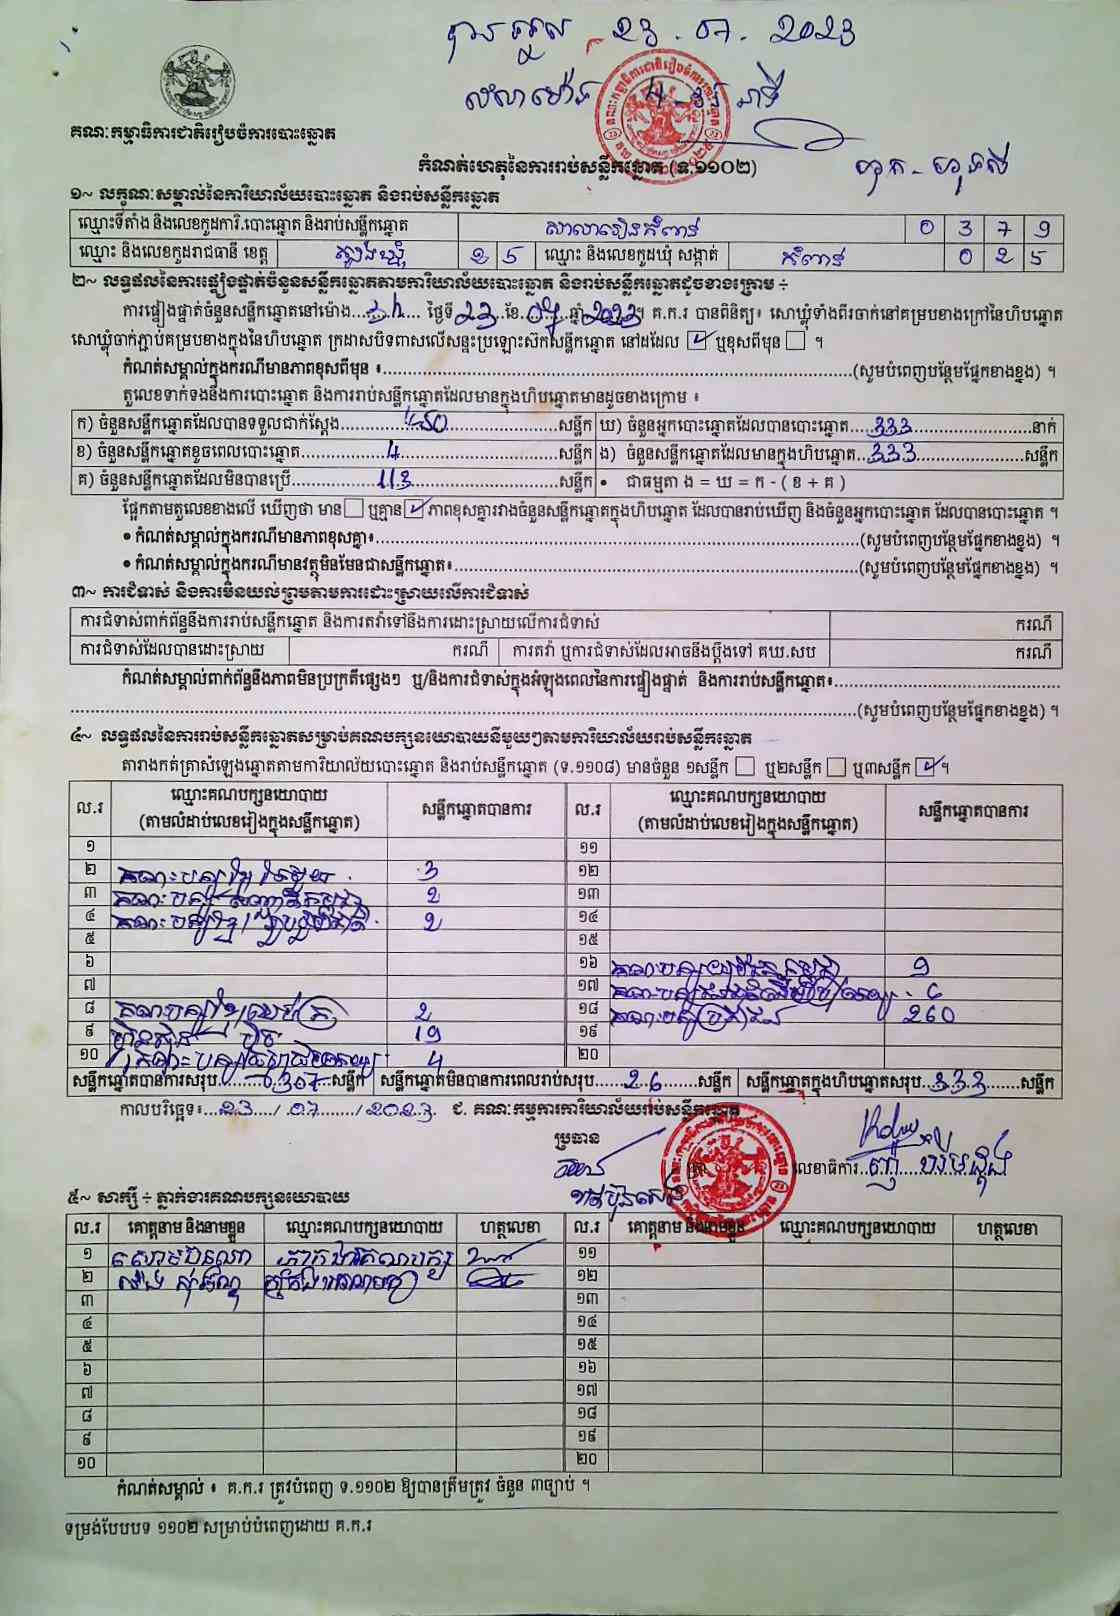 23.07.2023
គណៈកម្មាធិការជាតិរៀបចំការបោះឆ្នោត
កំណត់ហេតុនៃការរាប់សន្លឹកឆ្នោត (ទ.១១០២)
១~ លក្ខណៈសម្គាល់នៃការិយាល័យបោះឆ្នោត និងរាប់សន្លឹកឆ្នោត
ឈ្មោះទីតាំង និងលេខកូដការិ.បោះឆ្នោត និងរាប់សន្លឹកឆ្នោត សាលារៀនកំពាន់ 0 3 7 9
ឈ្មោះ និងលេខកូដរាជធានី ខេត្ត ត្បូងឃ្មុំ 2 5 ឈ្មោះ និងលេខកូដឃុំ សង្កាត់ កំពាន់ 0 2 5
២~ លទ្ធផលនៃការផ្ទៀងផ្ទាត់ចំនួនសន្លឹកឆ្នោតតាមការិយាល័យបោះឆ្នោត និងរាប់សន្លឹកឆ្នោតដូចខាងក្រោម ÷
ការផ្ទៀងផ្ទាត់ចំនួនសន្លឹកឆ្នោតនៅម៉ោង...3h... ថ្ងៃទី 23 ខែ 07 ឆ្នាំ 2023។ គ.ក.រ បានពិនិត្យ៖ សោឃ្លុំទាំងពីរចាក់នៅគម្របខាងក្រៅនៃហិបឆ្នោត
សោឃ្លុំចាក់ភ្ជាប់គម្របខាងក្នុងនៃហិបឆ្នោត ក្រដាសបិទពាសលើសន្ទះប្រឡោះស៊កសន្លឹកឆ្នោត នៅដដែល ☑ ឬខុសពីមុន ☐ ។
កំណត់សម្គាល់ក្នុងករណីមានភាពខុសពីមុន ៖...(សូមបំពេញបន្ថែមផ្នែកខាងខ្នង) ។
តួលេខទាក់ទងនឹងការបោះឆ្នោត និងការរាប់សន្លឹកឆ្នោតដែលមានក្នុងហិបឆ្នោតមានដូចខាងក្រោម ៖
ក) ចំនួនសន្លឹកឆ្នោតដែលបានទទួលជាក់ស្តែង...450...សន្លឹក ឃ) ចំនួនអ្នកបោះឆ្នោតដែលបានបោះឆ្នោត...333...នាក់
ខ) ចំនួនសន្លឹកឆ្នោតខូចពេលបោះឆ្នោត...4...សន្លឹក ង) ចំនួនសន្លឹកឆ្នោតដែលមានក្នុងហិបឆ្នោត...333...សន្លឹក
គ) ចំនួនសន្លឹកឆ្នោតដែលមិនបានប្រើ...113...សន្លឹក • ជាធម្មតា ង = ឃ = ក - ( ខ + គ )
ផ្អែកតាមតួលេខខាងលើ ឃើញថា មាន ☐ ឬគ្មាន ☑ ភាពខុសគ្នារវាងចំនួនសន្លឹកឆ្នោតក្នុងហិបឆ្នោត ដែលបានរាប់ឃើញ និងចំនួនអ្នកបោះឆ្នោត ដែលបានបោះឆ្នោត ។
• កំណត់សម្គាល់ក្នុងករណីមានភាពខុសគ្នា៖...(សូមបំពេញបន្ថែមផ្នែកខាងខ្នង) ។
• កំណត់សម្គាល់ក្នុងករណីមានវត្ថុមិនមែនជាសន្លឹកឆ្នោត៖...(សូមបំពេញបន្ថែមផ្នែកខាងខ្នង) ។
៣~ ការជំទាស់ និងការមិនយល់ព្រមតាមការដោះស្រាយលើការជំទាស់
ការជំទាស់ពាក់ព័ន្ធនឹងការរាប់សន្លឹកឆ្នោត និងការតវ៉ាទៅនឹងការដោះស្រាយលើការជំទាស់ ករណី
ការជំទាស់ដែលបានដោះស្រាយ ករណី ការតវ៉ា ឬការជំទាស់ដែលអាចនឹងប្តឹងទៅ គឃ.សប ករណី
កំណត់សម្គាល់ពាក់ព័ន្ធនឹងភាពមិនប្រក្រតីផ្សេងៗ ឬ/និងការជំទាស់ក្នុងអំឡុងពេលនៃការផ្ទៀងផ្ទាត់ និងការរាប់សន្លឹកឆ្នោត៖...
...(សូមបំពេញបន្ថែមផ្នែកខាងខ្នង) ។
៤~ លទ្ធផលនៃការរាប់សន្លឹកឆ្នោតសម្រាប់គណបក្សនយោបាយនីមួយៗតាមការិយាល័យរាប់សន្លឹកឆ្នោត
តារាងកត់ត្រាសំឡេងឆ្នោតតាមការិយាល័យបោះឆ្នោត និងរាប់សន្លឹកឆ្នោត (ទ.១១០៨) មានចំនួន ១សន្លឹក ☐ ឬ២សន្លឹក ☐ ឬ៣សន្លឹក ☑ ។
ល.រ ឈ្មោះគណបក្សនយោបាយ (តាមលំដាប់លេខរៀងក្នុងសន្លឹកឆ្នោត) សន្លឹកឆ្នោតបានការ ល.រ ឈ្មោះគណបក្សនយោបាយ (តាមលំដាប់លេខរៀងក្នុងសន្លឹកឆ្នោត) សន្លឹកឆ្នោតបានការ
១ ១១
២ 3 ១២
៣ 2 ១៣
៤ 2 ១៤
៥ ១៥
៦ ១៦
៧ ១៧
៨ 2 ១៨ 260
៩ 19 ១៩
១០ 4 ២០
សន្លឹកឆ្នោតបានការសរុប...307...សន្លឹក សន្លឹកឆ្នោតមិនបានការពេលរាប់សរុប...26...សន្លឹក សន្លឹកឆ្នោតក្នុងហិបឆ្នោតសរុប...333...សន្លឹក
កាលបរិច្ឆេទ៖...23.../07.../2023. ជ. គណៈកម្មការការិយាល័យរាប់សន្លឹកឆ្នោត
ប្រធាន
លេខាធិការ
៥~ សាក្សី ÷ ភ្នាក់ងារគណបក្សនយោបាយ
ល.រ គោត្តនាម និងនាមខ្លួន ឈ្មោះគណបក្សនយោបាយ ហត្ថលេខា ល.រ គោត្តនាម និងនាមខ្លួន ឈ្មោះគណបក្សនយោបាយ ហត្ថលេខា
១ ១១
២ ១២
៣ ១៣
៤ ១៤
៥ ១៥
៦ ១៦
៧ ១៧
៨ ១៨
៩ ១៩
១០ ២០
កំណត់សម្គាល់ ៖ គ.ក.រ ត្រូវបំពេញ ទ.១១០២ ឱ្យបានត្រឹមត្រូវ ចំនួន ៣ច្បាប់ ។
ទម្រង់បែបបទ ១១០២ សម្រាប់បំពេញដោយ គ.ក.រ